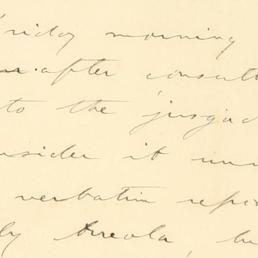 Friday morning
after consult
to the juzgad
consider it un
verbatim repo
by Areola, bu